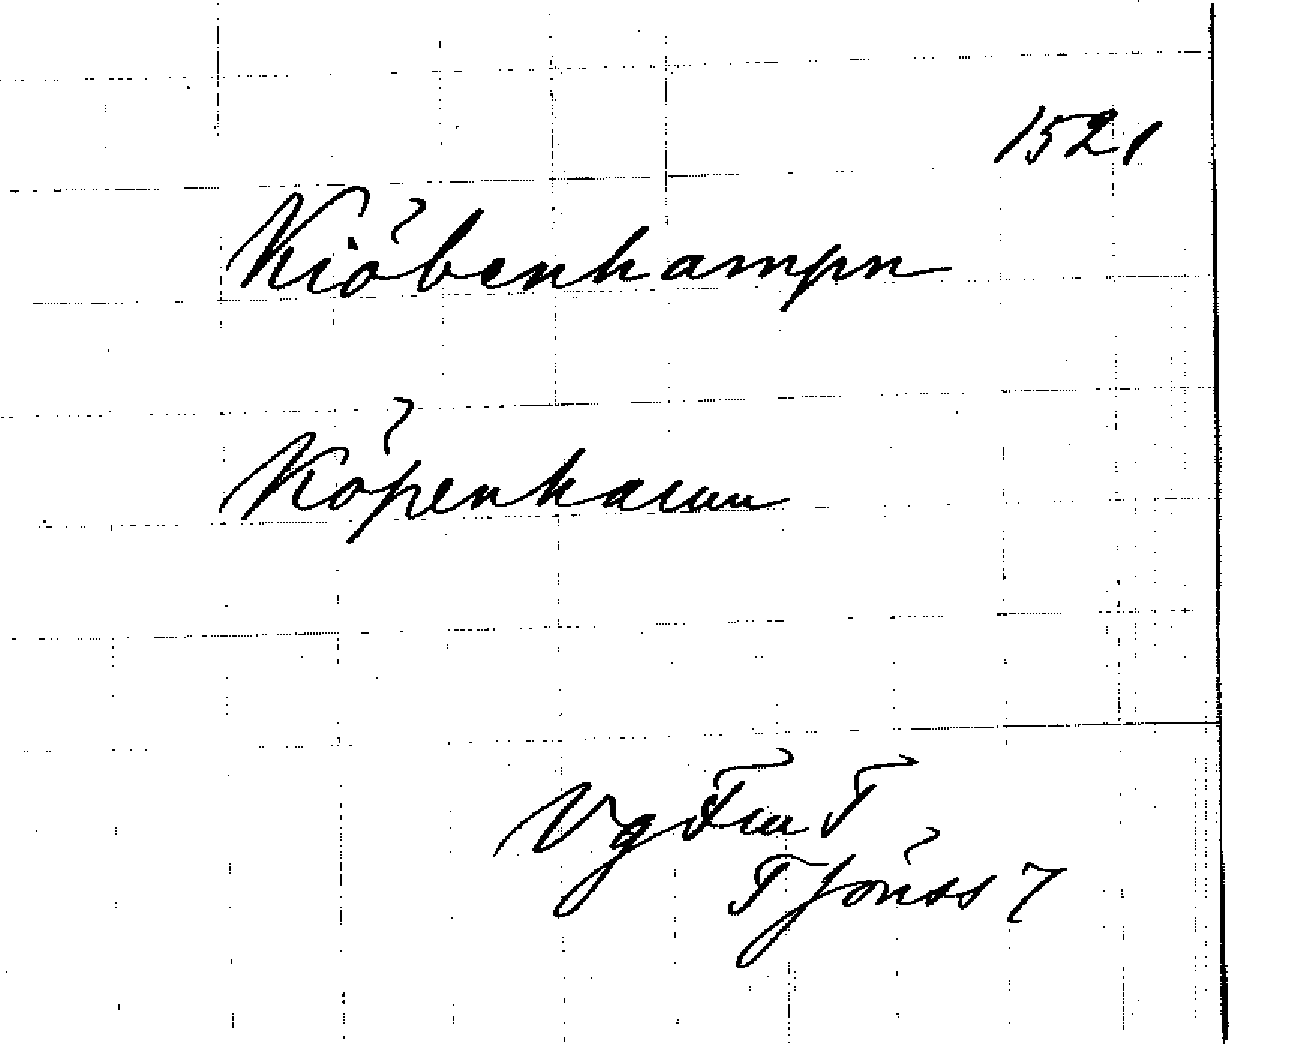 1521
Kiöbenhampn
Köpenhamn
Vg Fin T
T Jönss 7